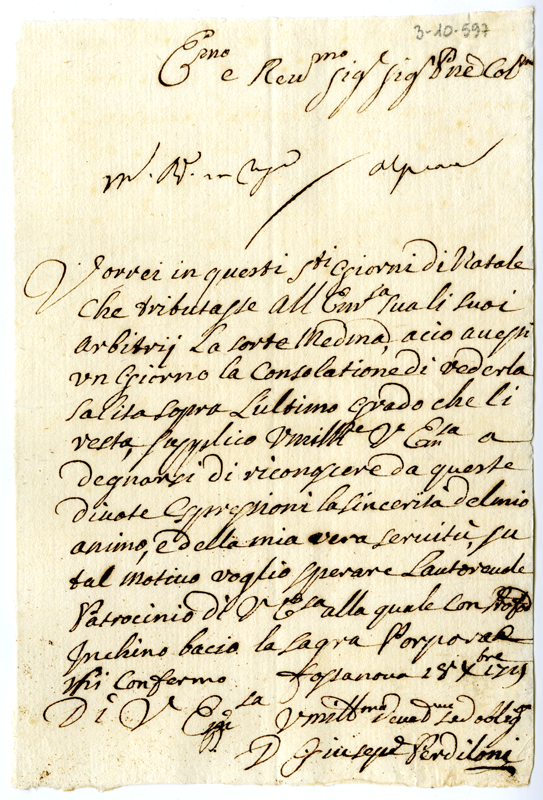 3-10-597
E^mo e Reu^mo Sig^r Sig^r P^ne Col^mo
Vorrei in questi s^ti Giorni di Natale
che tributasse all Em^sa sua li suoi
arbitrij La sorte Medma, acio auessi
un Giorno la Consolatione di vederla
salita sopra Lultimo Grado che li
resta, supplico Vmill^te V Em^sa a
degnarsi di riconoscere da queste
diuote Espressioni la sincerità del mio
animo, e della mia vera seruitù, su
tal motiuo voglio sperare Lautoreuole
Patrocinio di V E^sa alla quale con
Inchino bacio la sagra Porpora e
Mi Confermo Fossanova 18 X^bre
Di V E^sa Vmill^mo
D Giusepe Perdiloni